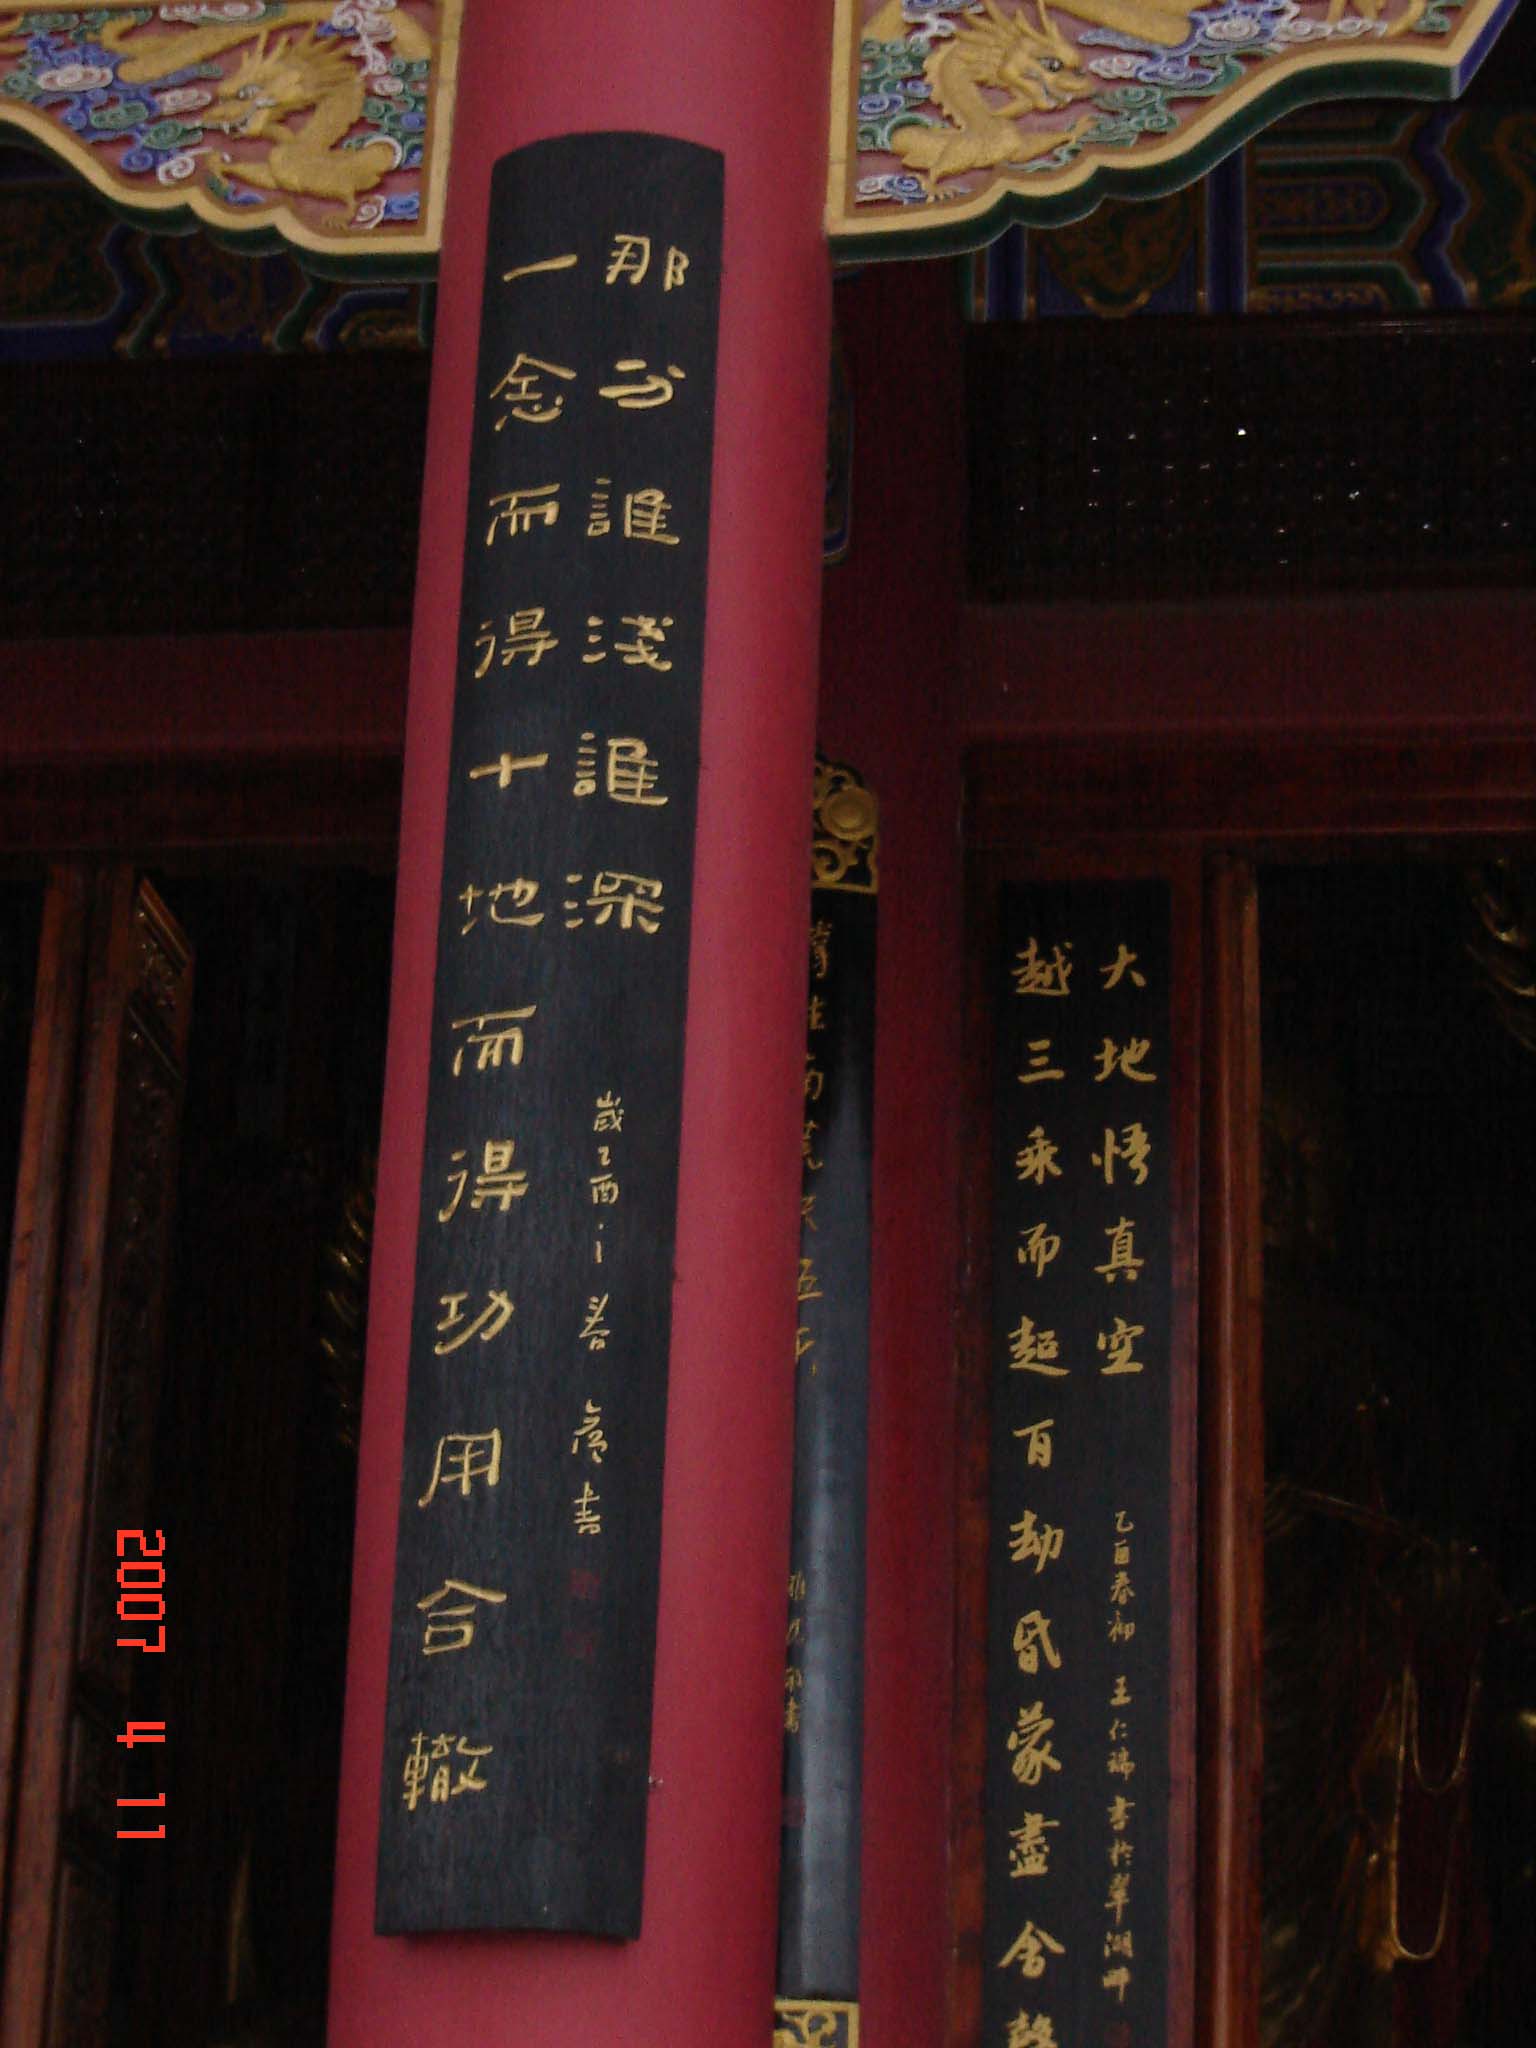 一念而得十地而得功用合轍
那分誰淺誰深
歲乙酉
春
書
越三乘而超百劫昏蒙盡舍
大地悟真空
乙酉春初 王仁端書於翠湖畔
2007 4 11